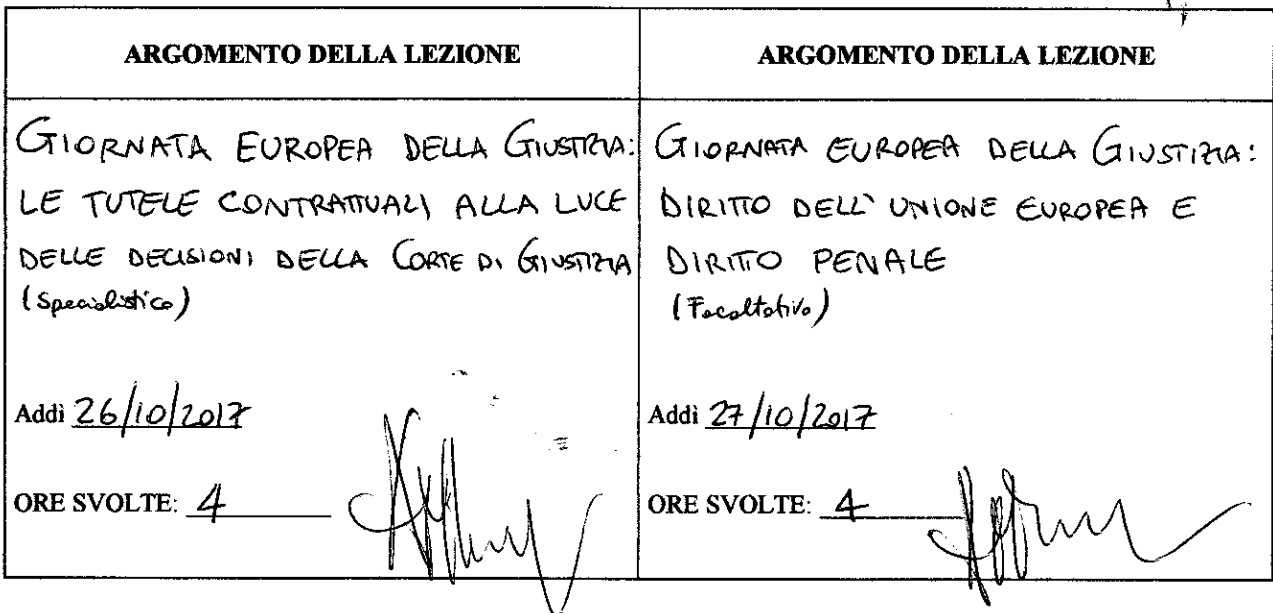 ARGOMENTO DELLA LEZIONE
GIORNATA EUROPEA DELLA GIUSTIZIA:
LE TUTELE CONTRATTUALI ALLA LUCE
DELLE DECISIONI DELLA CORTE DI GIUSTIZIA
(Specialistico)
Addì 26/10/2017
ORE SVOLTE: 4
ARGOMENTO DELLA LEZIONE
GIORNATA EUROPEA DELLA GIUSTIZIA:
DIRITTO DELL'UNIONE EUROPEA E
DIRITTO PENALE
(Facoltativo)
Addì 27/10/2017
ORE SVOLTE: 4